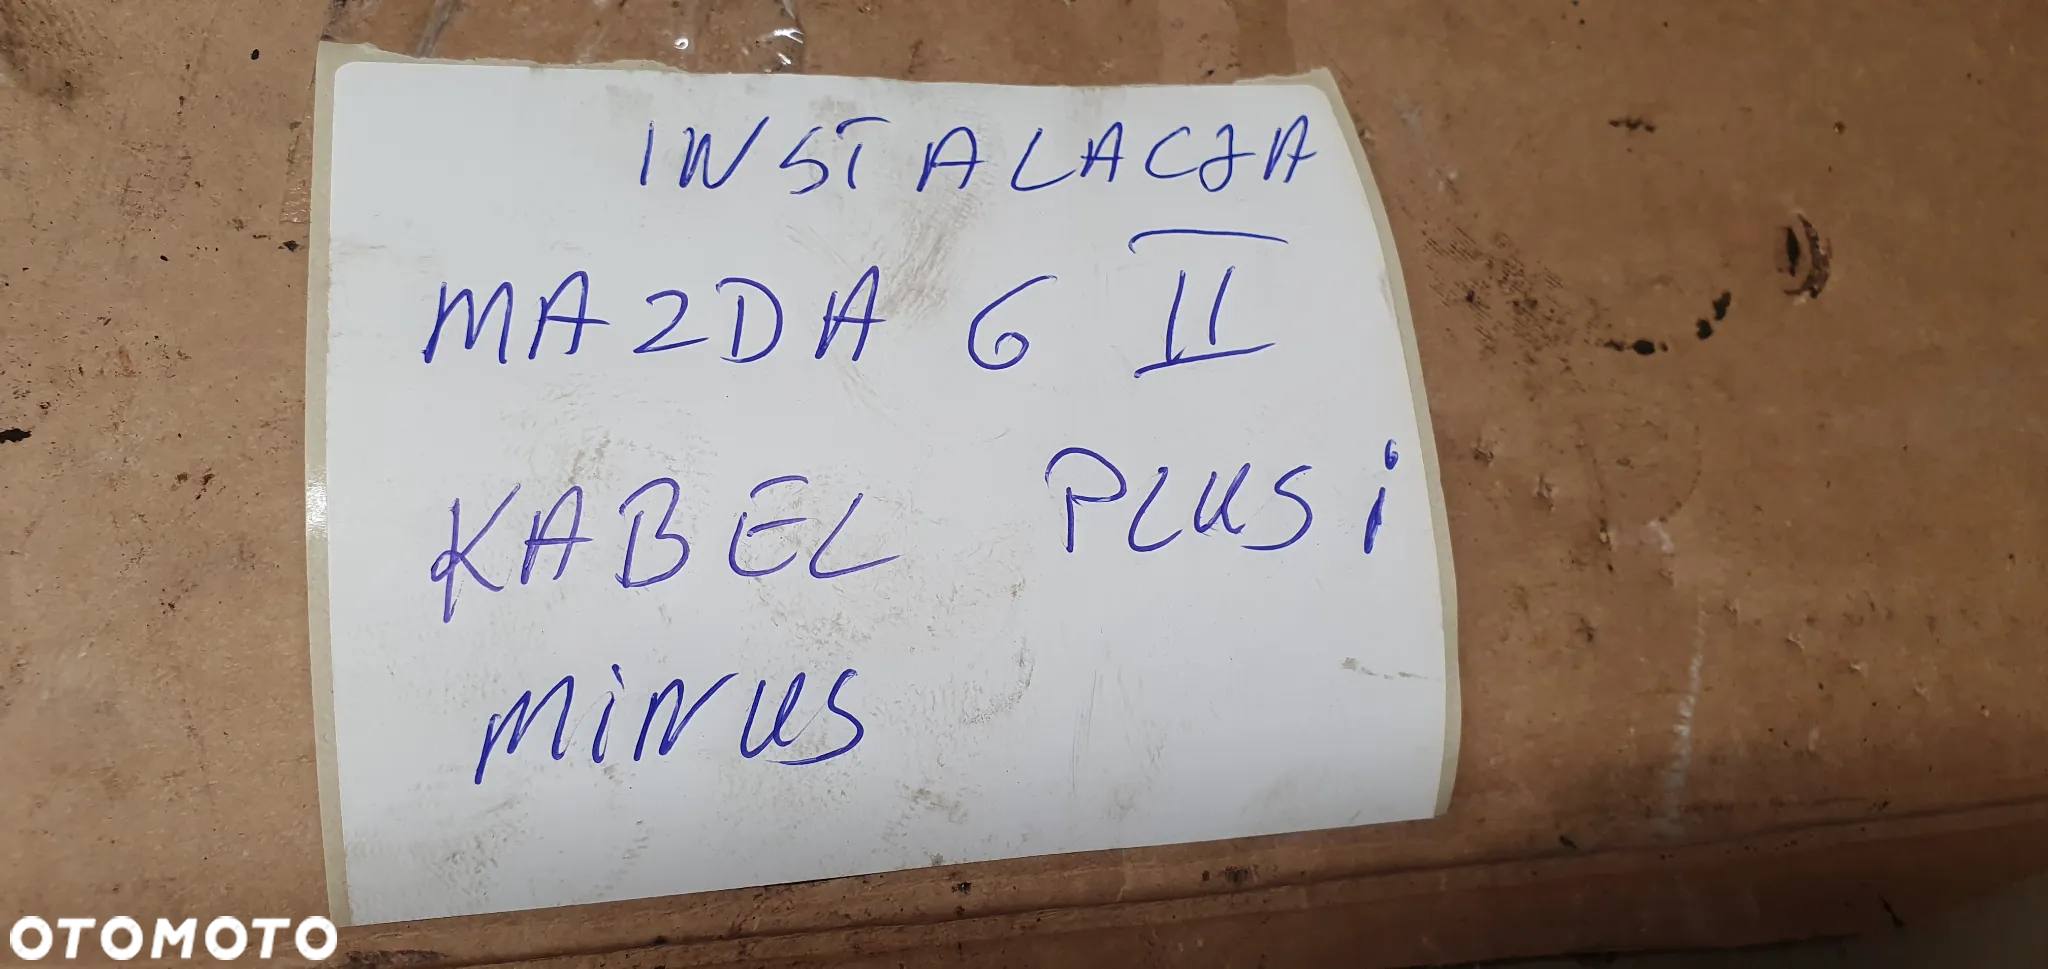 INSTALACJA
MAZDA 6 II
KABEL PLUS i
MiNUS
OTOMOTO